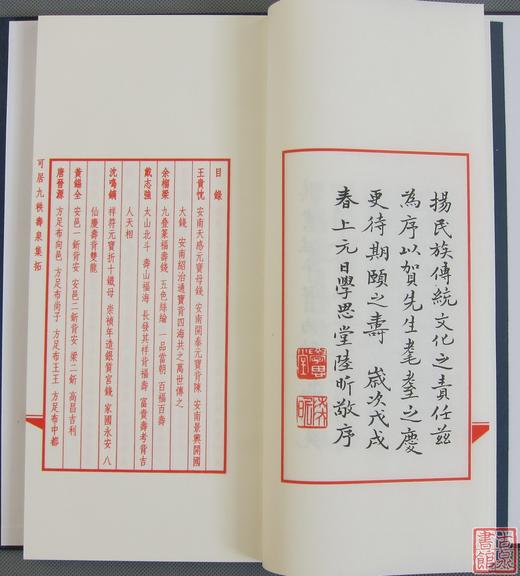 揚民族傳統文化之責任茲
為序以賀先生耄耋之慶
更待期頤之壽　歲次戊戌
春上元日學思堂陸昕敬序
目錄
王貴忱　安南天感元寶母錢　安南開泰元寶背陳　安南景興開國
大錢　安南紹治通寶背四海共之萬世傳之
余榴梁　九疊篆福壽錢　五色絲綸　一品當朝　百福百壽
戴志強　太山北斗　壽山福海　長發其祥背福壽　富貴壽考背吉
人天相
沈鳴鏑　祥符元寶折十鐵母　崇禎年造銀賀宮錢　家國永安　八
仙慶壽背雙龍
黃錫全　安邑一釿背安　安邑二釿背安　梁二釿　高昌吉利
唐晉源　方足布向邑　方足布尚子　方足布王王　方足布中都
可居九秩壽泉集拓
陸昕
書館